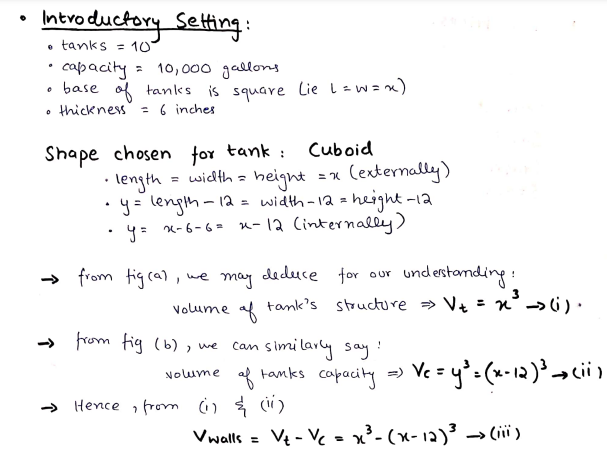 • Introductory Setting:
• tanks = 10
• capacity = 10,000 gallons
• base of tanks is square (ie l = w = x)
• thickness = 6 inches
Shape chosen for tank : Cuboid
• length = width = height = x (externally)
• y = length - 12 = width - 12 = height - 12
• y = x-6-6 = x-12 (internally)
→ from fig (a), we may deduce for our understanding:
volume of tank's structure ⇒ Vt = x³ → (i).
→ from fig (b), we can similarly say:
volume of tanks capacity ⇒ Vc = y³ = (x-12)³ → (ii)
→ Hence, from (i) & (ii)
Vwalls = Vt - Vc = x³ - (x-12)³ → (iii)